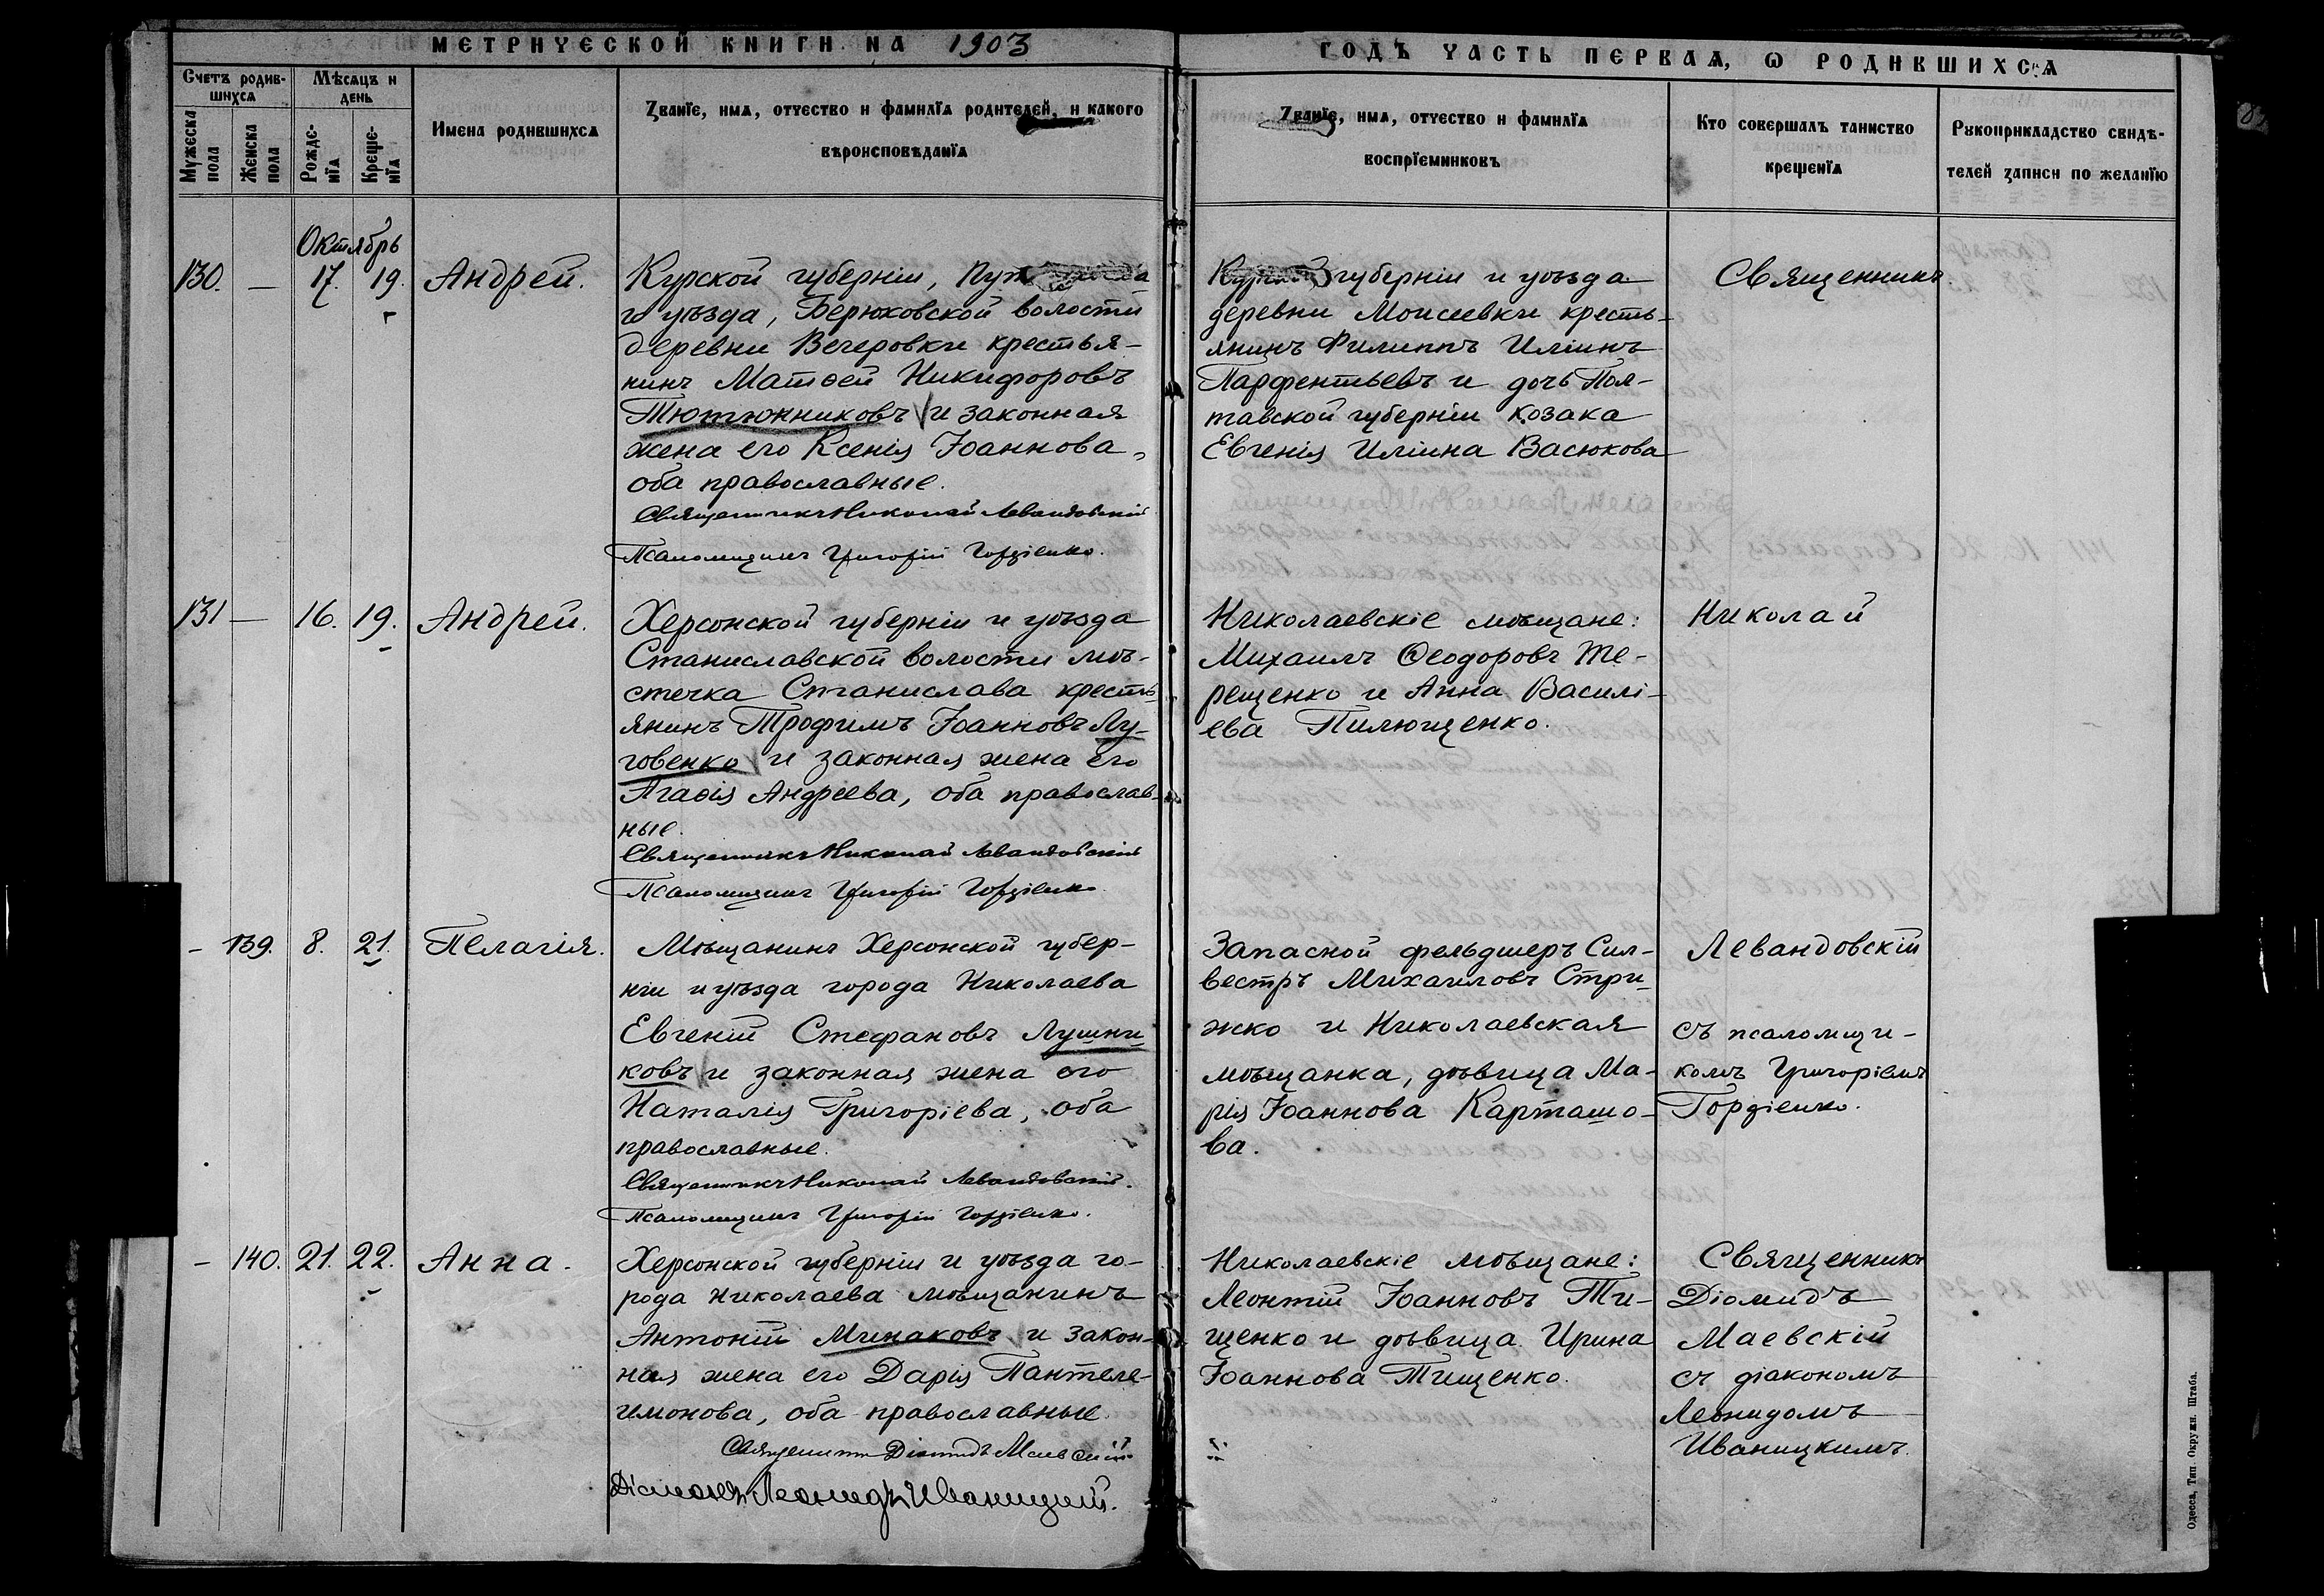 МЕТРИЧЕСКОЙ КНИГИ НА 1903
ГОДЪ ЧАСТЬ ПЕРВАЯ, Ѡ РОДИВШИХСЯ
Счетъ родив-
шихся
Мѣсяцъ и
день
Мужеска
пола
Женска
пола
Рожде-
нїя
Креще-
нїя
Имена родившихся
Званїе, имя, отчество и фамилїя родителей, и какого
вѣроисповѣданїя
Званїе, имя, отчество и фамилїя
воспрїемниковъ
Кто совершалъ таинство
крещенїя
Рукоприкладство свидѣ-
телей записи по желанїю
Октябрь
130. — 17. 19. Андрей.
Курской губерніи, Пут
го уѣзда, Берюховской волости
деревни Вечеровки крестья-
нинъ Матѳей Никифоровъ
Тютюнниковъ и законная
жена его Ксенія Іоаннова,
оба православные.
Священникъ Николай Левандовскій
Псаломщикъ Григорій Гордіенко.
губерніи и уѣзда
деревни Моисеевки кресть-
янинъ Филиппъ Иліинъ
Парфентьевъ и дочь Пол-
тавской губерніи козака
Евгенія Иліина Васюкова
Священникъ
131 — 16. 19. Андрей.
Херсонской губерніи и уѣзда
Станиславской волости мѣ-
стечка Станислава кресть
янинъ Трофимъ Іоанновъ Лу-
говенко и законная жена его
Агаѳія Андреева, оба православ-
ные.
Священникъ Николай Левандовскій
Псаломщикъ Григорій Гордіенко
Николаевскіе мѣщане:
Михаилъ Ѳеодоровъ Те-
рещенко и Анна Василі-
ева Пилющенко.
Николай
— 139. 8. 21. Пелагія.
Мѣщанинъ Херсонской губер-
ніи и уѣзда города Николаева
Евгеній Стефановъ Лушни
ковъ и законная жена его
Наталія Григоріева, оба
православные.
Священникъ Николай Левандовскій.
Псаломщикъ Григорій Гордіенко.
Запасной фельдшеръ Сил-
вестръ Михаиловъ Стри-
жко и Николаевская
мѣщанка, дѣвица Ма-
рія Іоаннова Карташо-
ва.
Левандовскій
съ псаломщи-
комъ Григоріемъ
Гордіенко.
— 140. 21. 22. Анна.
Херсонской губерніи и уѣзда го-
рода Николаева мѣщанинъ
Антоній Минаковъ и закон-
ная жена его Дарія Пантеле-
имонова, оба православные
Священникъ Діомидъ Маевскій
Діаконъ Леонидъ Иваницкій.
Николаевскіе мѣщане:
Леонтій Іоанновъ Ти-
щенко и дѣвица Ирина
Іоаннова Тищенко.
Священникъ
Діомидъ
Маевскій
съ діакономъ
Леонидомъ
Иваницкимъ.
Одесса, Тип. Окружн. Штаба.